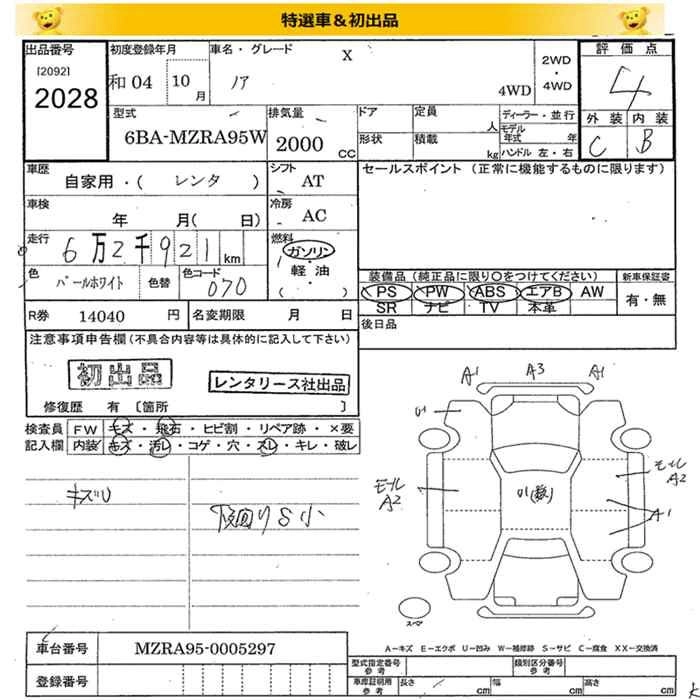 特選車＆初出品
出品番号
[2092]
2028
初度登録年月
和04
10
月
車名・グレード
X
ノア
4WD
2WD
・
4WD
評価点
4
外装
内装
C
B
型式
6BA-MZRA95W
排気量
2000
CC
ドア
形状
定員
人
積載
kg
ディーラー・並行
モデル年式
年
ハンドル 左・右
車歴
自家用・( レンタ )
シフト
AT
セールスポイント (正常に機能するものに限ります)
車検
年 月( 日)
冷房
AC
走行
6万2千921km
燃料
ガソリン
・
軽油
( )
色
パールホワイト
色替
色コード
070
装備品 (純正品に限り〇をつけてください)
PS
PW
ABS
エアB
AW
SR
ナビ
TV
本革
新車保証書
有・無
R券
14040 円
名変期限
月 日
後日品
注意事項申告欄(不具合内容等は具体的に記入して下さい)
初出品
レンタリース社出品
修復歴 有 [箇所 ]
検査員
記入欄
FW
キズ・飛石・ヒビ割・リペア跡・×要
内装
キズ・汚レ・コゲ・穴・スレ・キレ・破レ
キズU
下回りS小
A1
A3
A1
U1
モール
A2
U1(数)
モール
A2
A1
スペア
A－キズ E－エクボ U－凹み W－補修跡 S－サビ C－腐食 XX－交換済
車台番号
MZRA95-0005297
登録番号
型式指定番号
参考
類別区分番号
参考
車庫証明用
参考
長さ
cm
幅
cm
高さ
cm